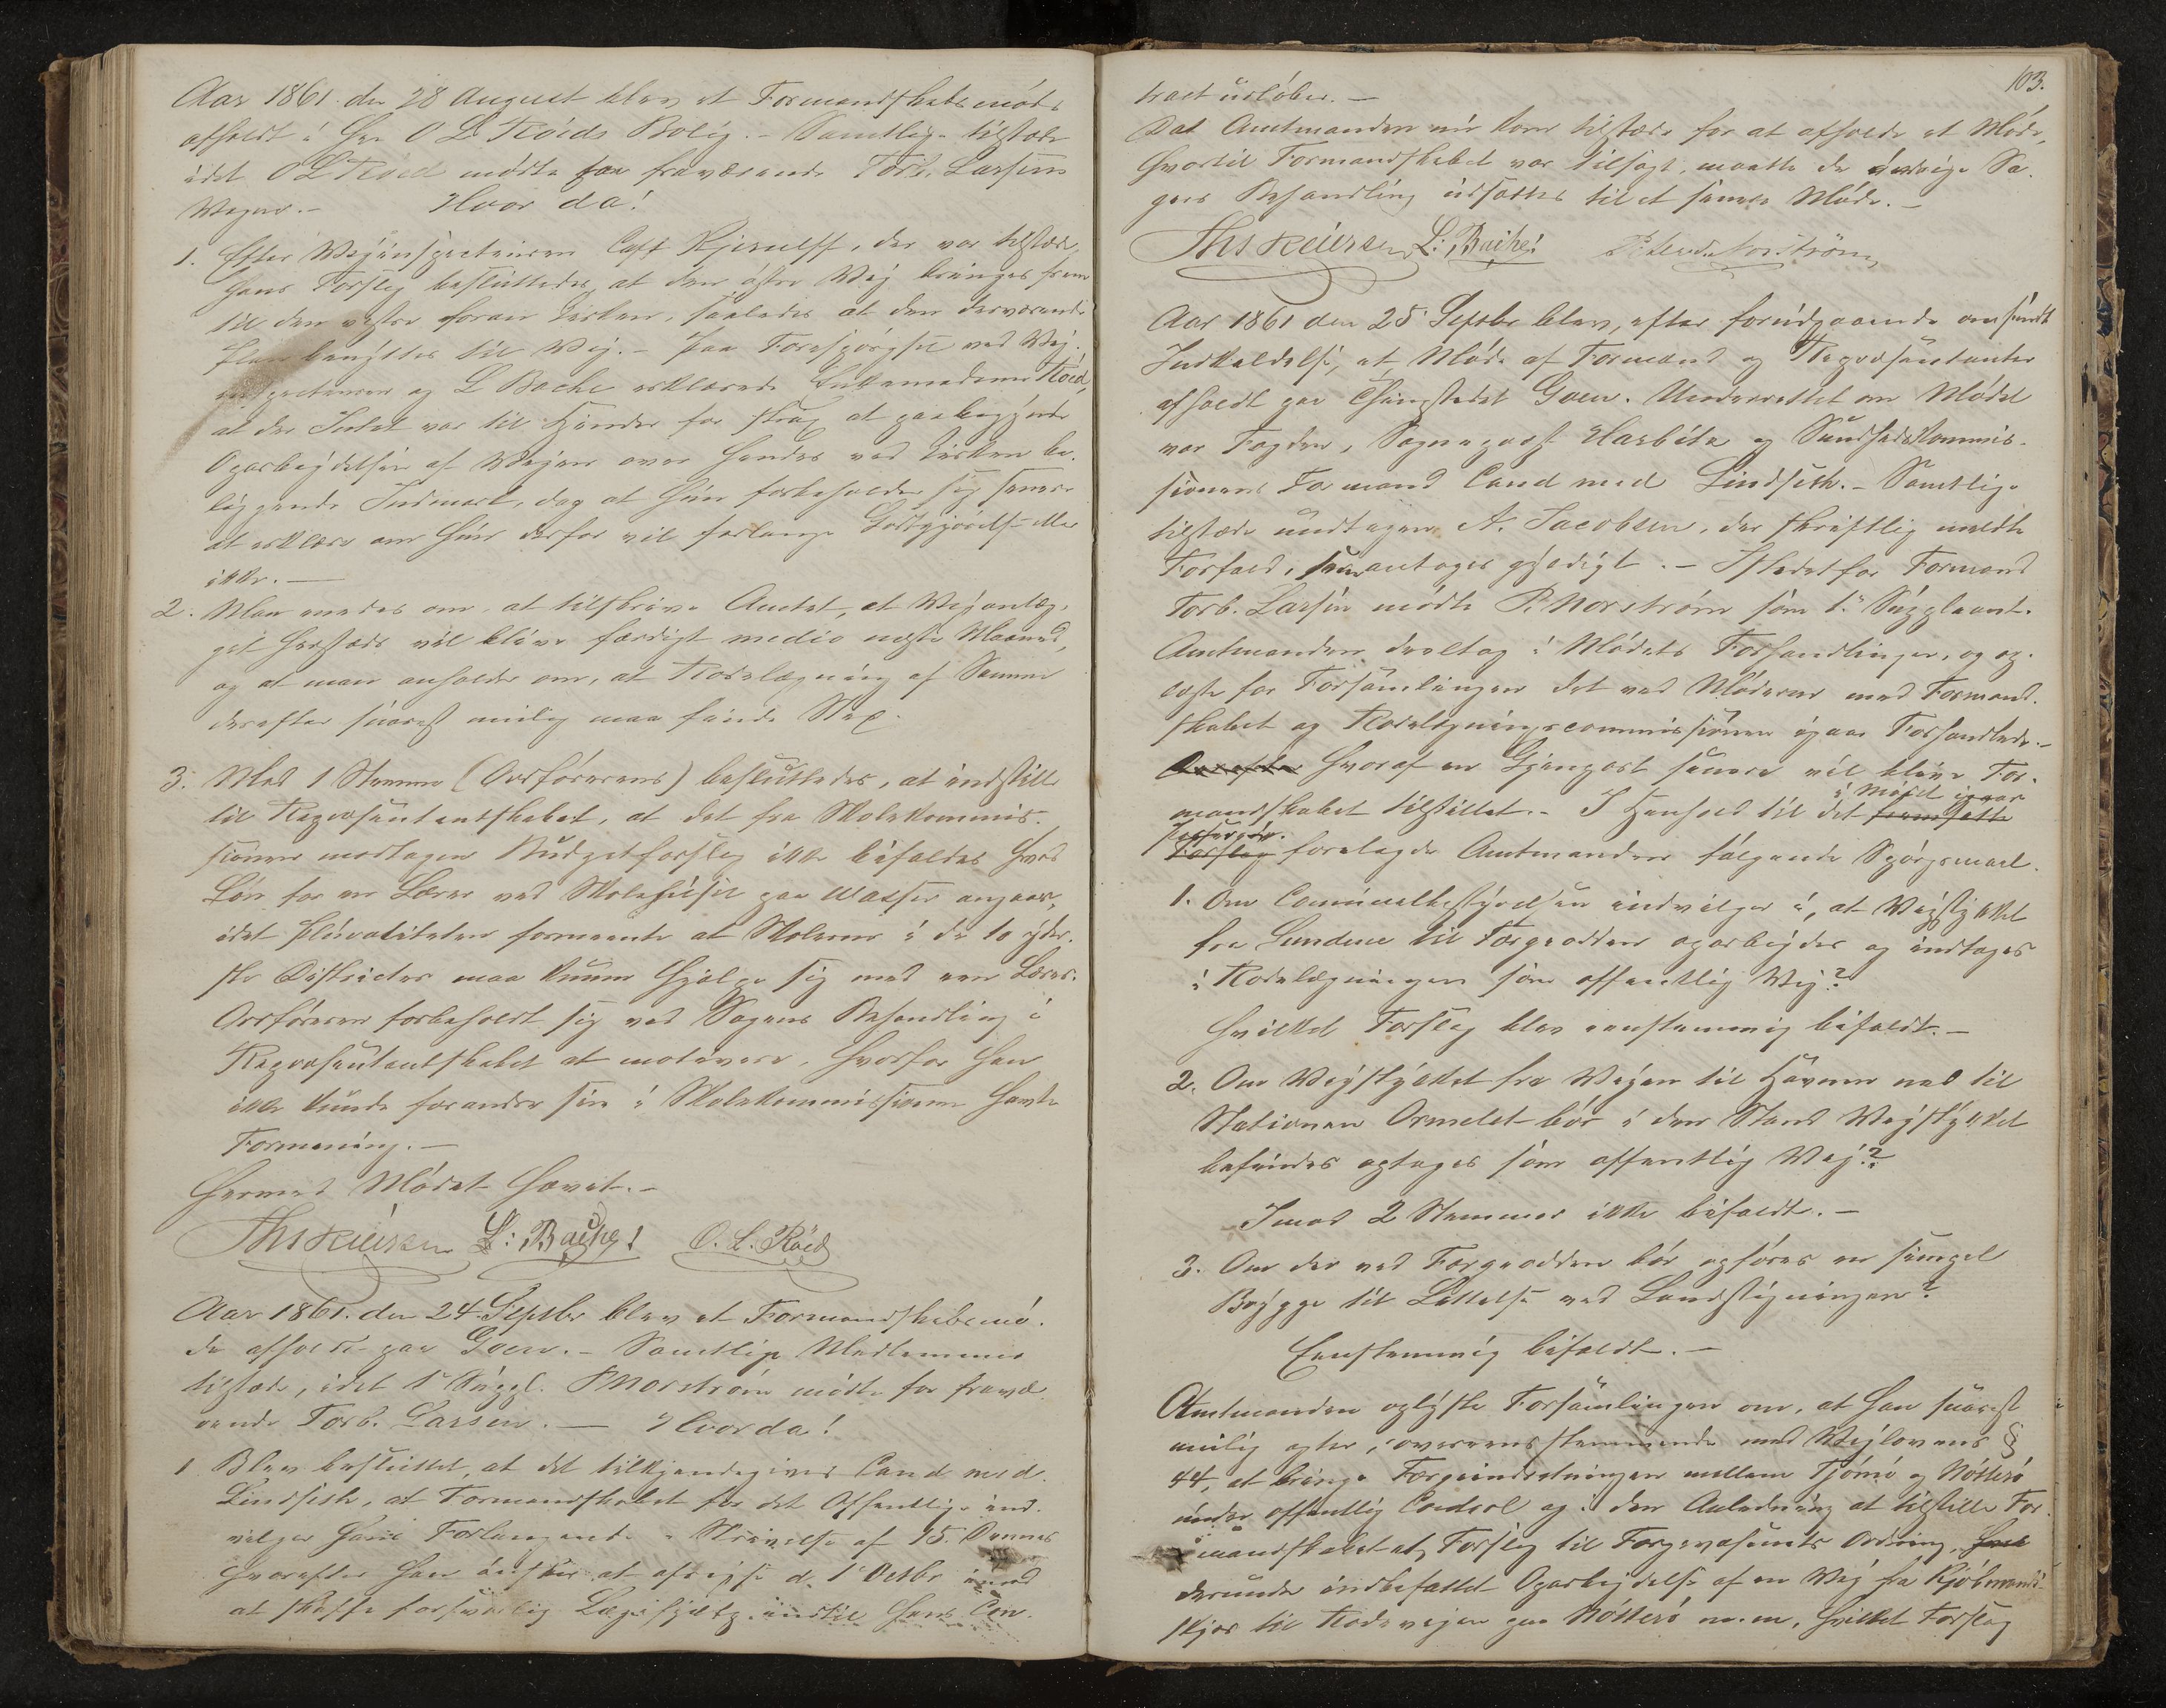 Aar 1861 den 28 August blev et Formandskabsmöde
afholdt i Hrr O L Röeds Bolig. – Samtlige tilstæde
idet O L Röed mödte for fraværende Torb. Larsens
Vegne. – Hvor da!
1. Efter Vejinspecteuren Capt Kjerulff, der var tilstæde,
hans Forslag besluttedes, at den östre Vej bringes frem
til den vestre foran Kirken, saaledes at den derværende
benÿttes til Vej. – Paa Foresporgsel ved Vej-
inspecteuren og L Bache erklærede Enkemadame Röed,
at der Intet var til Hinder for strax at paabegynde
Oparbeidelsen af Vejen over hendes ved Kirken be-
liggende Indmark, dog at hun forbeholder sig senere
at erklære om hun derfor vil forlange Godtgjörelse eller
ikke. –
2. Man enedes om, at tilskrive Amtet, at Vejanlæg-
get herstæds vil blive færdigt medio næste Maaned,
og at man anholder om, at Rodelægning af Samme
derefter snarest mulig maa finde Sted.
3. Mod 1 Stemme (Ordförerens) besluttedes, at indstille
til Repræsentantskabet, at det fra Skolekommis-
sionen modtagen Budgetforslag ikke bifaldes hvad
Lön for en Lærer ved Skolehuset paa Wasser angaar,
idet Pluraliteten formeente at Skolerne i de to yder-
ste Districter maa kunne hjælpe sig med een Lærer.
Ordföreren forbeholdt sig ved Sagens Behandling i
Repræsentantskabet at motivere, hvorfor han
ikke kunde forandre sin i Skolekommissionen havte
Formening. –
Hermed Mödet hævet. –
Ths Reiersen L: Bache! O. L. Röed
Aar 1861. den 24. Septbr blev et Formandskabsmö-
de afholdt paa Goen. – Samtlige Medlemmer
tilstæde, idet 1e Suppl. P Norström mödte for fravæ-
rende Torb. Larsen. – Hvor da!
1 Blev besluttet, at det tilkjendegives Cand med.
Lindseth, at Formandskabet for det Offentlige ind-
vilger hans Forlangende i Skrivelse af 15. Dennes
hvorefter han önsker at afrejse d. 1 Octbr imod
at skaffe forsvarlig Lægehjælp indtil hans Con-
103.
tract udlöber. –
Da Amtmanden nu kom tilstæde for at afholde et Möde,
hvortil Formandskabet var tilsagt, maatte de övrige Sa-
gers Behandling udsættes til et senere Möde. –
Ths Reiersen L: Bache! Norström
Aar 1861 den 25 Septbr blev, efter forudgaaende omsendt
Indkaldelse, et Möde af Formænd og Repræsentanter
afholdt paa Thingstedet Goen. Underrettet om Mödet
var Fogden, Sognepræst Harbitz og Sundhedskommis-
sionens Formand Cand med Lindseth. – Samtlige
tilstæde undtagen A. Jacobsen, der skriftlig meldte
Forfald, som antoges gyldigt. – Istedetfor Formand
Torb. Larsen mödte P. Norström som 1e Suppleant.
Amtmanden deeltog i Mödets Forhandlinger, og op-
læste for Forsamlingen det ved Möderne med Formand-
skabet og Rodelægningscommissionen igaar Forhandlede. –
hvoraf en Gjenpart senere vil blive For-
i Mödet igaar
mandskabet tilstillet. – I Henhold til det fremsatte
Forslag forelagde Amtmanden fölgende Spörgsmaal.
1. Om Communalbestyrelsen indvilger i, at Vejstykket
fra Sundene til Færgeodden oparbejdes og indtages
i Rodelægningen som offentlig Vej?
Hvilket Forslag blev eenstemmig bifaldt. –
2. Om Vejstykket fra Vejen til Havnen ned til
Stationen Ormelet bör i den Stand Vejstykket
befindes optages som offentlig Vej?
Imod 2 Stemmer ikke bifaldt. –
3. Om der ved Færgeodden bör opföres en simpel
Brygge til Lettelse ved Landstigningen?
Eenstemmig bifaldt. –
Amtmanden oplyste Forsamlingen om, at han snarest
mulig agter, i overeensstemmende med Vejlovens §
44, at bringe Færgeindretningen mellem Tjömö og Nötterö
under offentlig Control og i den Anledning at tilstille For-
mandskabet et Forslag til Færgevæsenets Ordning,
derunder indbefattet Oparbejdelse af en Vej fra Kjöbmand-
skjær til Rodevejen paa Nötterö m. m, hvilket Forslag